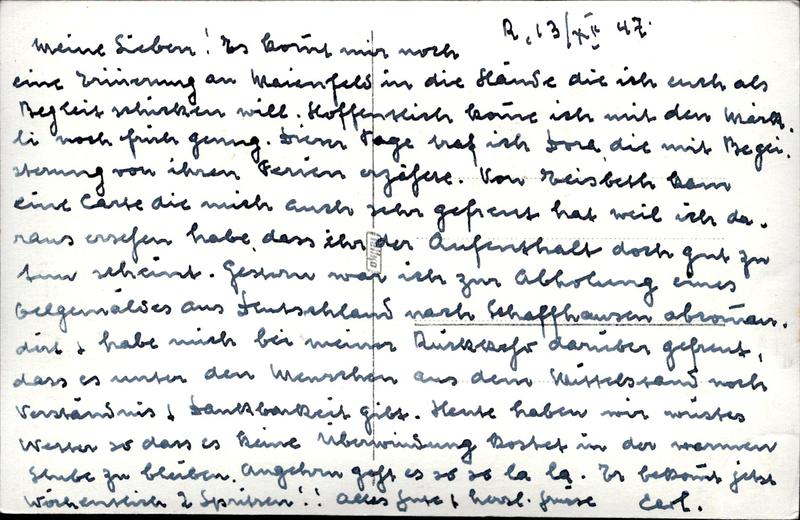 R, 13/XII 47.
Meine Lieben! Es kom̄t mir noch
eine Erin̄erung an Maienfeld in die Hände die ich euch als
Begleit schicken will. Hoffentlich kom̄e ich mit den Märk-
li noch früh genug. Dieser Tage traf ich Dora, die mit Begei-
sterung von ihren Ferien erzählte. Von Leisbeth kam
eine Carte die mich auch sehr gefreut hat weil ich da-
raus ersehen habe, dass ihr der Aufenthalt doch gut zu
tun scheint. Gestern war ich zur Abholung eines
Oelgemäldes aus Deutschland nach Schaffhausen abkoman-
dirt & habe mich bei meiner Rückkehr darüber gefreut,
dass es unter den Menschen aus dem Mittelstand noch
Verständnis & Dankbarkeit gibt. Heute haben wir wüstes
Wetter so dass es keine Überwindung kostet in der warmen
Stube zu bleiben. Angehrn geht es so so la la. Er bekom̄t jetzt
wöchentlich 2 Spritzen!! Alles Gute & herzl. Grüsse Carl.